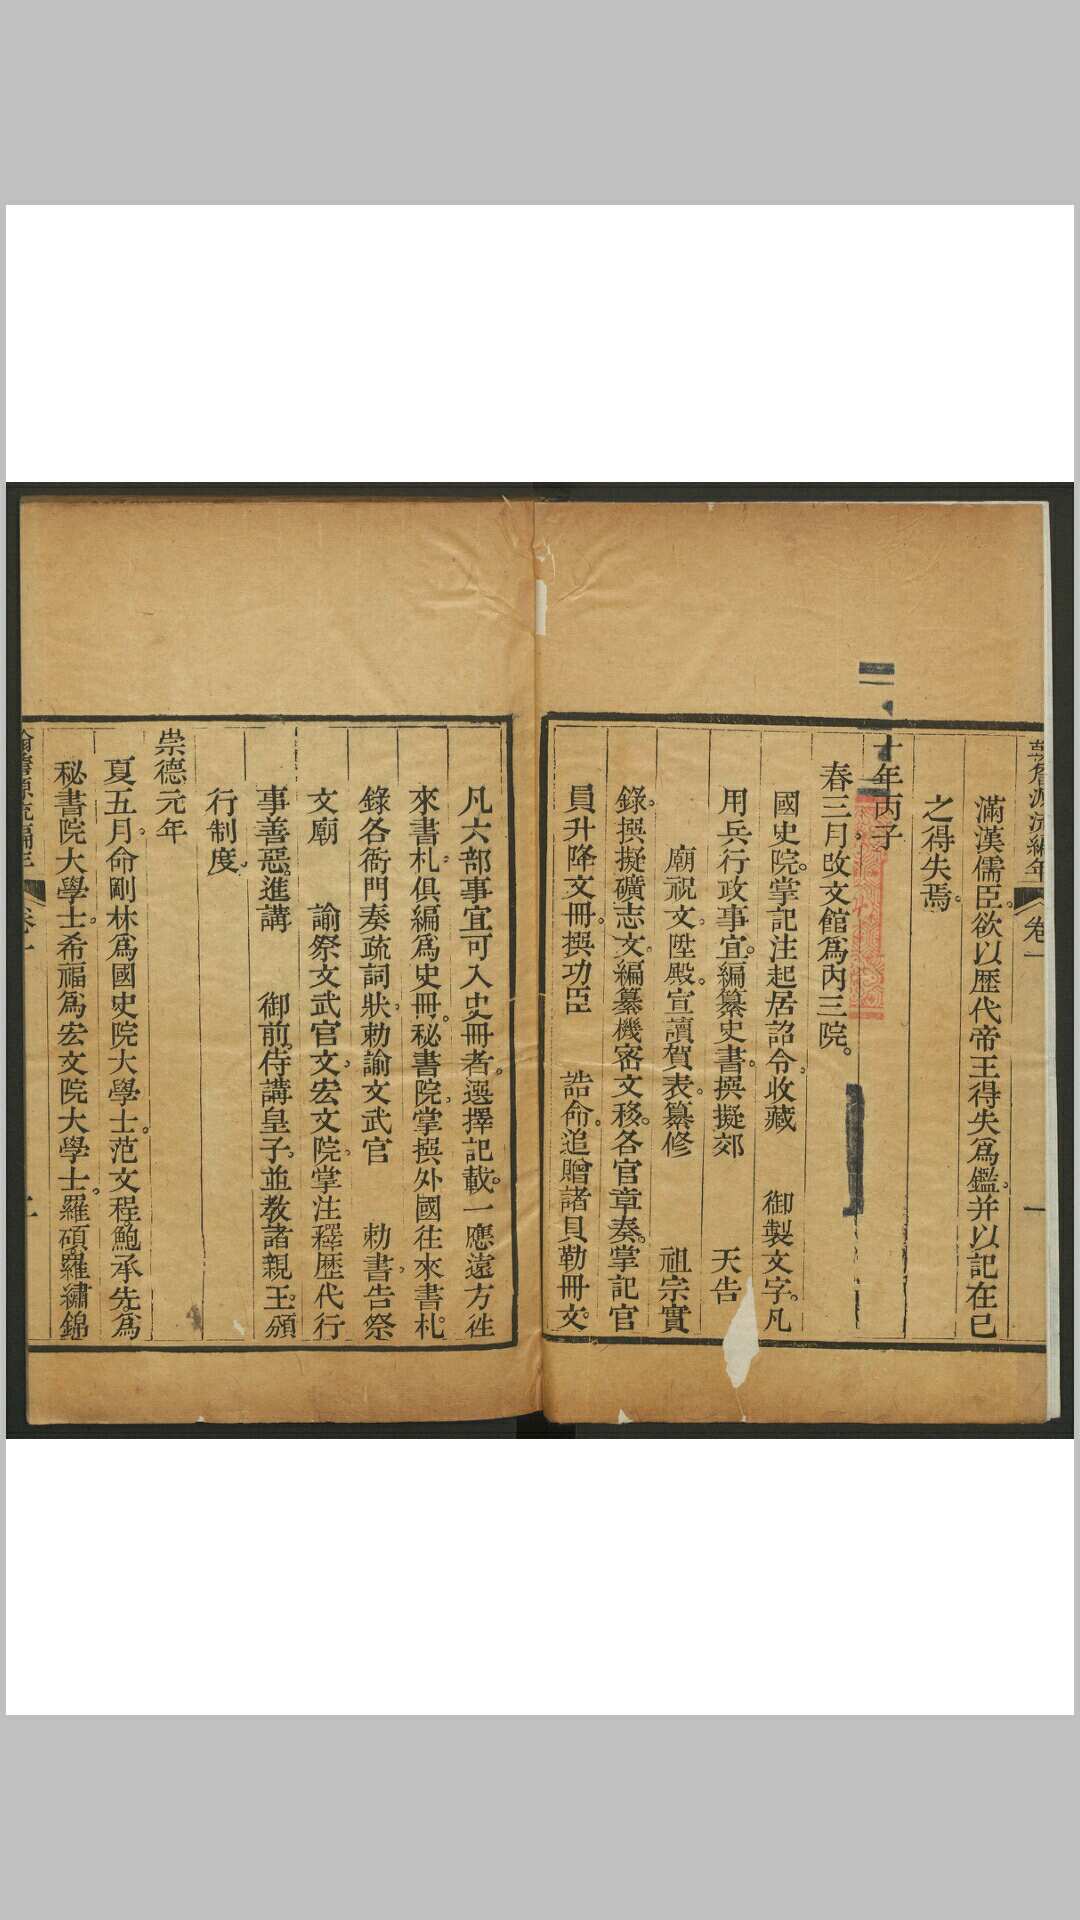 卷一
一
滿漢儒臣。欲以歴代帝王得失爲鑑。并以記在已
之得失焉。
十年丙子
春三月。改文館爲丙三院。
國史院。掌記注起居詔令。收藏 御製文字。凡
用兵行政事宜。編纂史書。撰擬郊 天告
廟祝文。陞殿。宣讀賀表。纂修 祖宗實
錄。撰擬礦志文。編纂機密文移。各官章奏。掌記官
員升降文冊。撰功臣 誥命。追贈諸貝勒冊文。
凡六部事宜可入史冊者。選擇記載。一應遠方徃
來書札。俱編爲史冊。秘書院。掌撰外國往來書札。
錄各衙門奏疏詞狀。勅諭文武官 勅書。告祭
文廟 諭祭文武官文。宏文院。掌注釋歴代行
事善惡。進講 御前。侍講皇子。並教諸親王。頒
行制度。
崇德元年
夏五月。命剛林爲國史院大學士。范文程鮑承先爲
秘書院大學士。希福爲宏文院大學士。羅碩羅繡錦